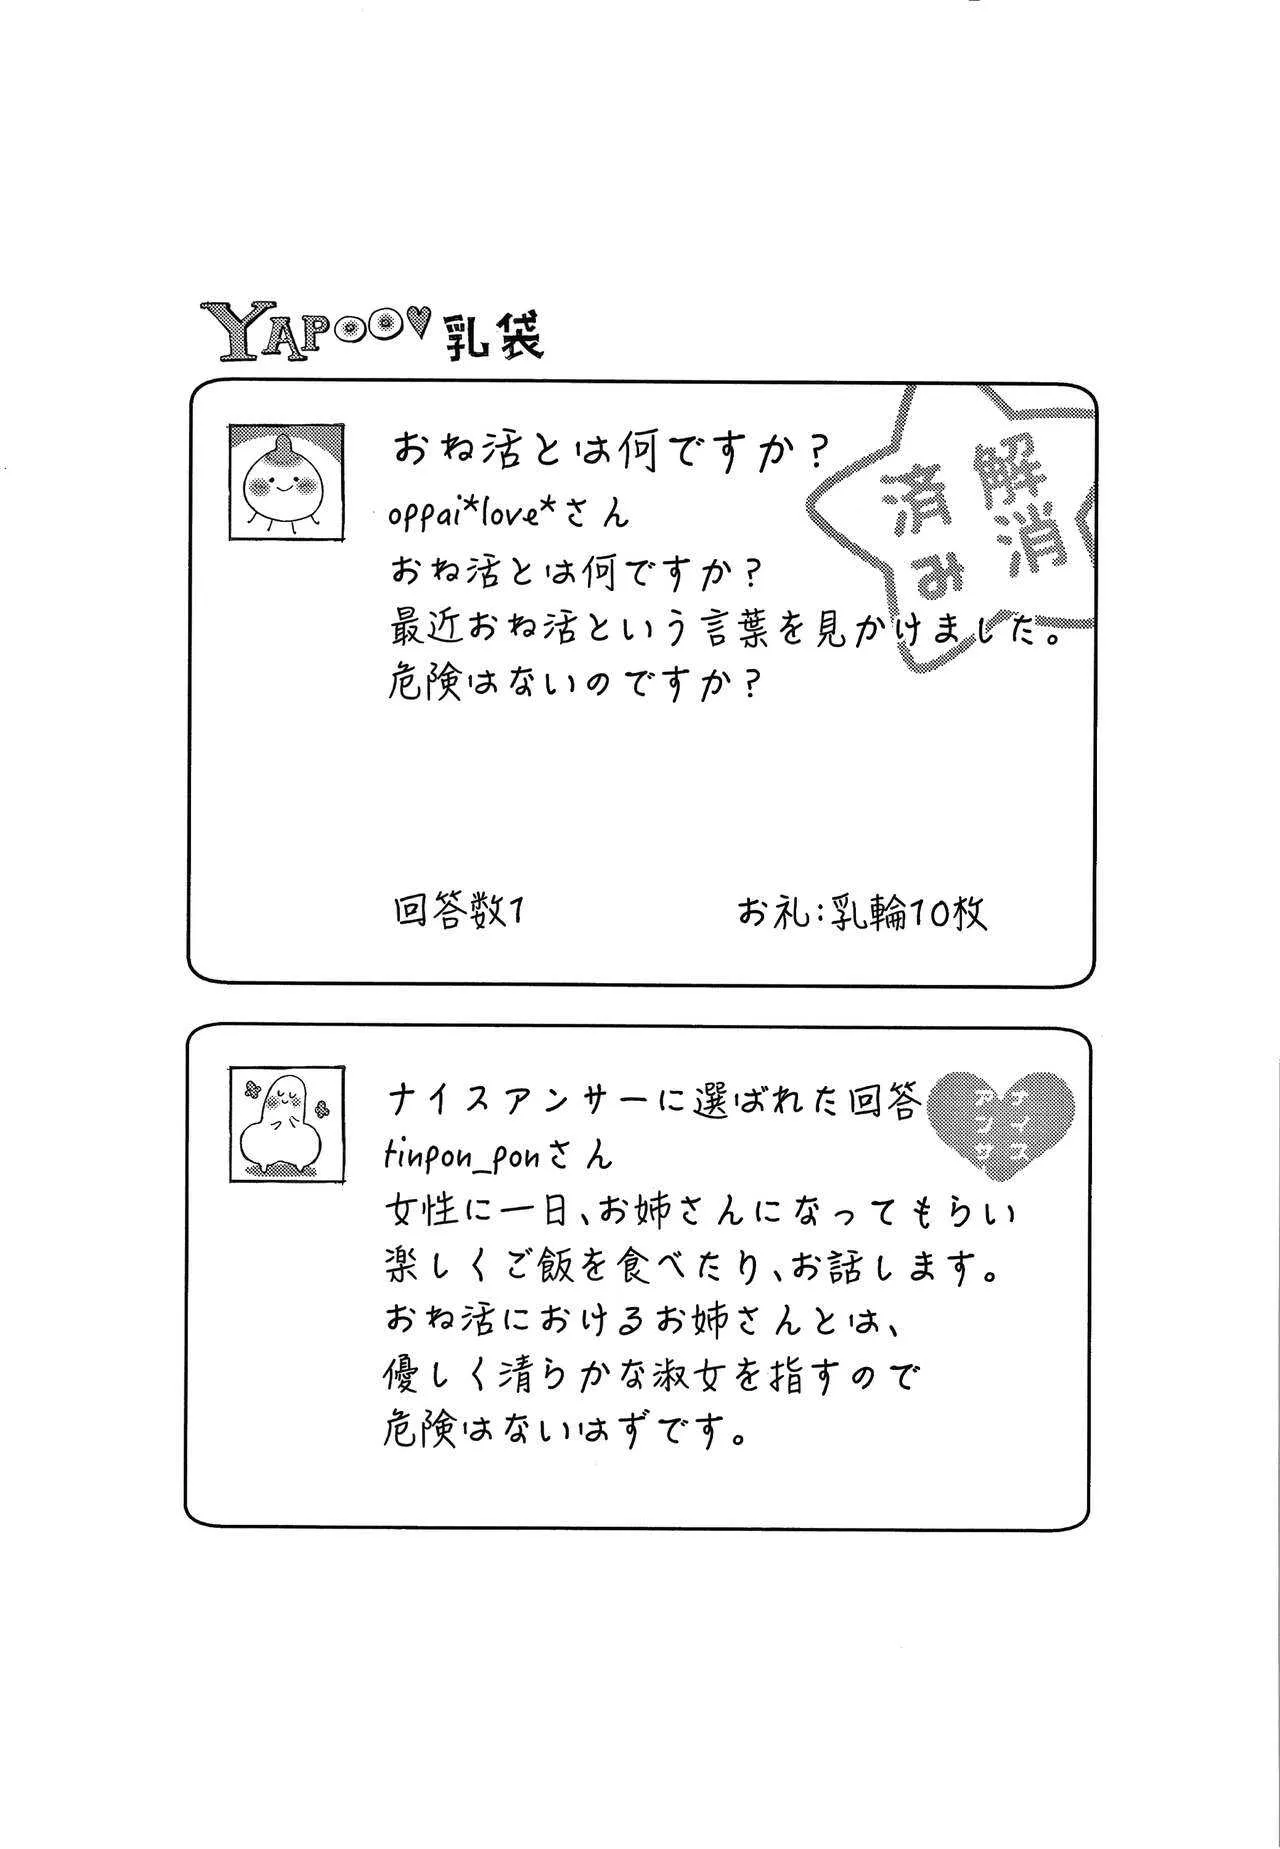 YAPOO♥乳袋
おね活とは何ですか？
解消
済み
oppai*love*さん
おね活とは何ですか？
最近おね活という言葉を見かけました。
危険はないのですか？
回答数1
お礼：乳輪10枚
ナイスアンサーに選ばれた回答
ナイス
アンサー
tinpon_ponさん
女性に一日、お姉さんになってもらい
楽しくご飯を食べたり、お話します。
おね活におけるお姉さんとは、
優しく清らかな淑女を指すので
危険はないはずです。